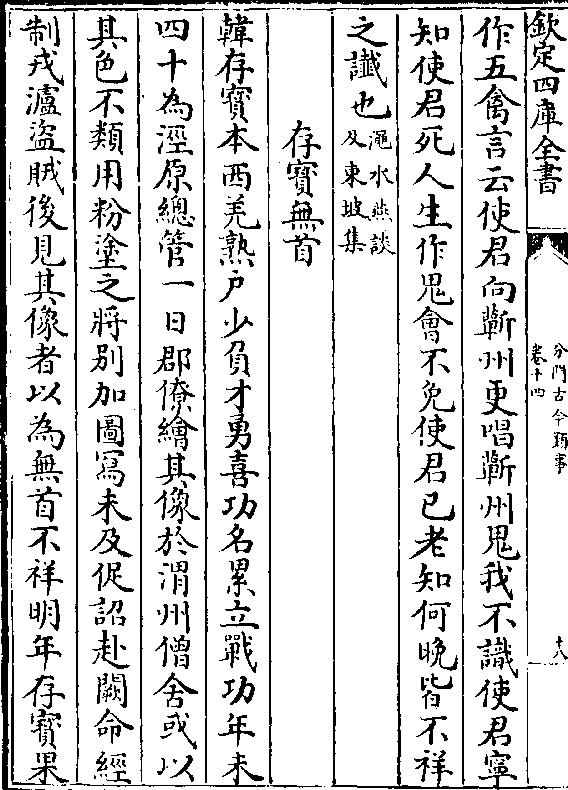 欽定四庫全書
分門古今類事
卷十四
十八
作五禽言云使君向蘄州更唱蘄州鬼我不識使君寧
知使君死人生作鬼會不免使君已老知何晚皆不祥
之讖也澠水燕談
及東坡集
存寳無首
韓存寳本西羌熟户少負才勇喜功名累立戰功年未
四十為涇原總管一日郡僚繪其像於渭州僧舍或以
其色不類用粉塗之將别加圖寫未及促詔赴闕命經
制戎瀘盜賊後見其像者以為無首不祥明年存寳果